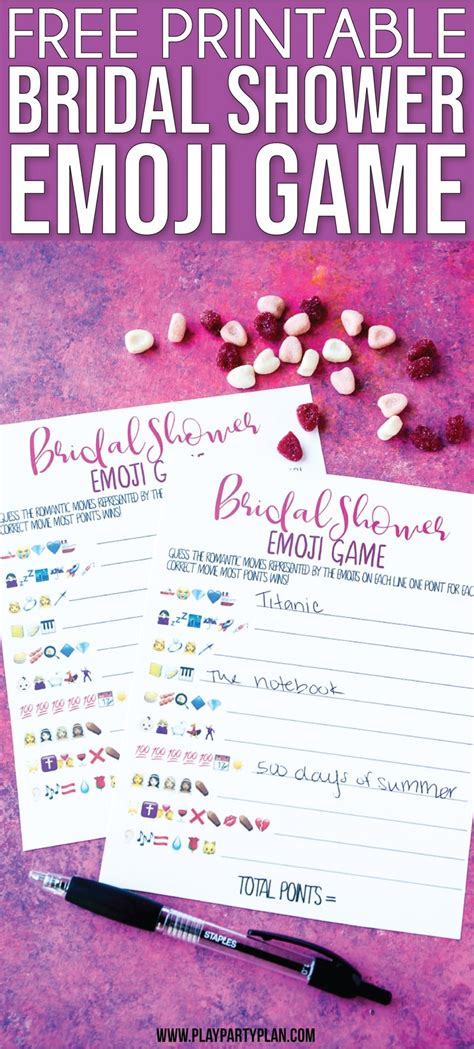 FREE PRINTABLE
BRIDAL SHOWER
EMOJI GAME
Bridal Shower
EMOJI G
GUESS THE ROMANTIC MOVIES REPRESENTED BY THE
CORRECT MOVIE MOST POINTS WINS!
Bridal Shower
EMOJI GAME
GUESS THE ROMANTIC MOVIES REPRESENTED BY THE EMOJIS ON EACH LINE ONE POINT FOR EACH
CORRECT MOVIE MOST POINTS WINS!
Titanic
The notebook
500 days of summer
TOTAL POINTS =
STAPLES
WWW.PLAYPARTYPLAN.COM